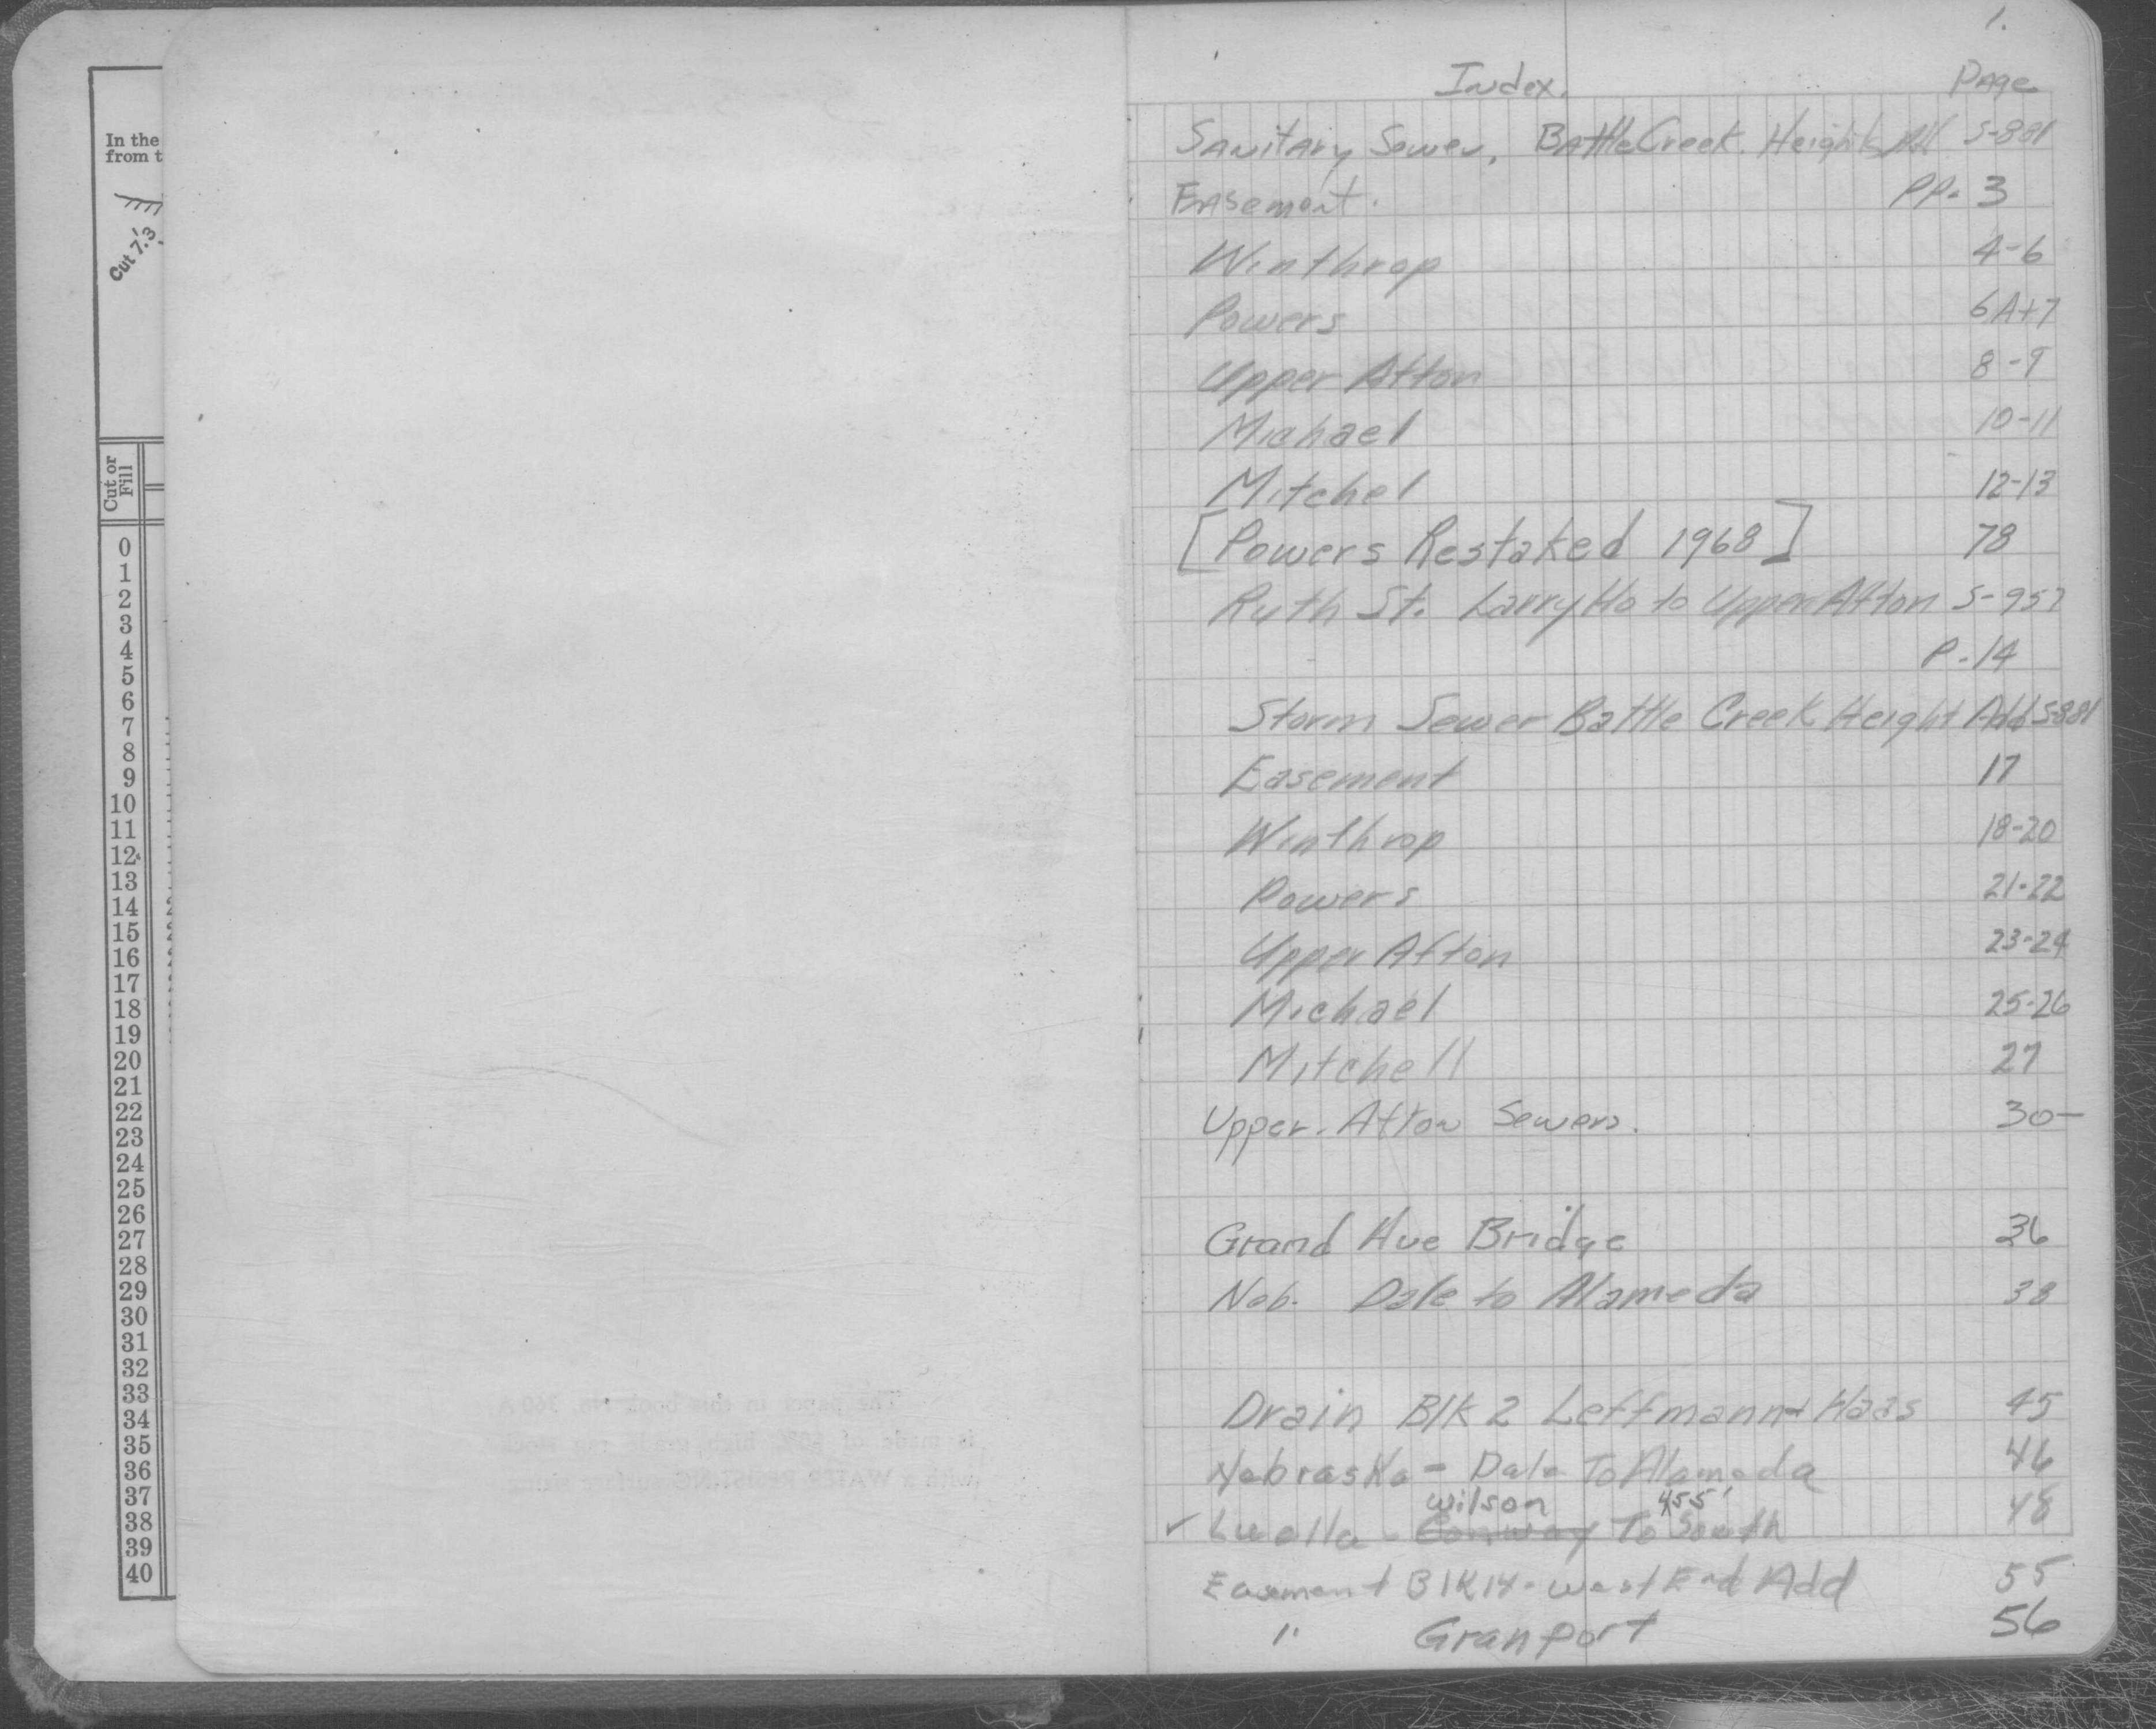 In the
from t
Cut 7.3
Cut or Fill
0
1
2
3
4
5
6
7
8
9
10
11
12
13
14
15
16
17
18
19
20
21
22
23
24
25
26
27
28
29
30
31
32
33
34
35
36
37
38
39
40
1.
Index. Page
Sanitary Sewer, Battle Creek Heights Add S-881
Easement. PP. 3
Winthrop 4-6
Powers 6A+7
Upper Afton 8-9
Michael 10-11
Mitchel 12-13
[Powers Restaked 1968] 78
Ruth St. Larry Ho to Upper Afton S-957
P-14
Storm Sewer Battle Creek Height Add S-881
Easement 17
Winthrop 18-20
Powers 21-22
Upper Afton 23-24
Michael 25-26
Mitchell 27
Upper Afton Sewers. 30-
Grand Ave Bridge 36
Neb. Dale to Alameda 38
Drain Blk 2 Leffmann + Haas 45
Nebraska - Dale To Alameda 46
wilson 455'
✓ Luella - Conway To South 48
Easement Blk 14 - West End Add 55
" Granport 56